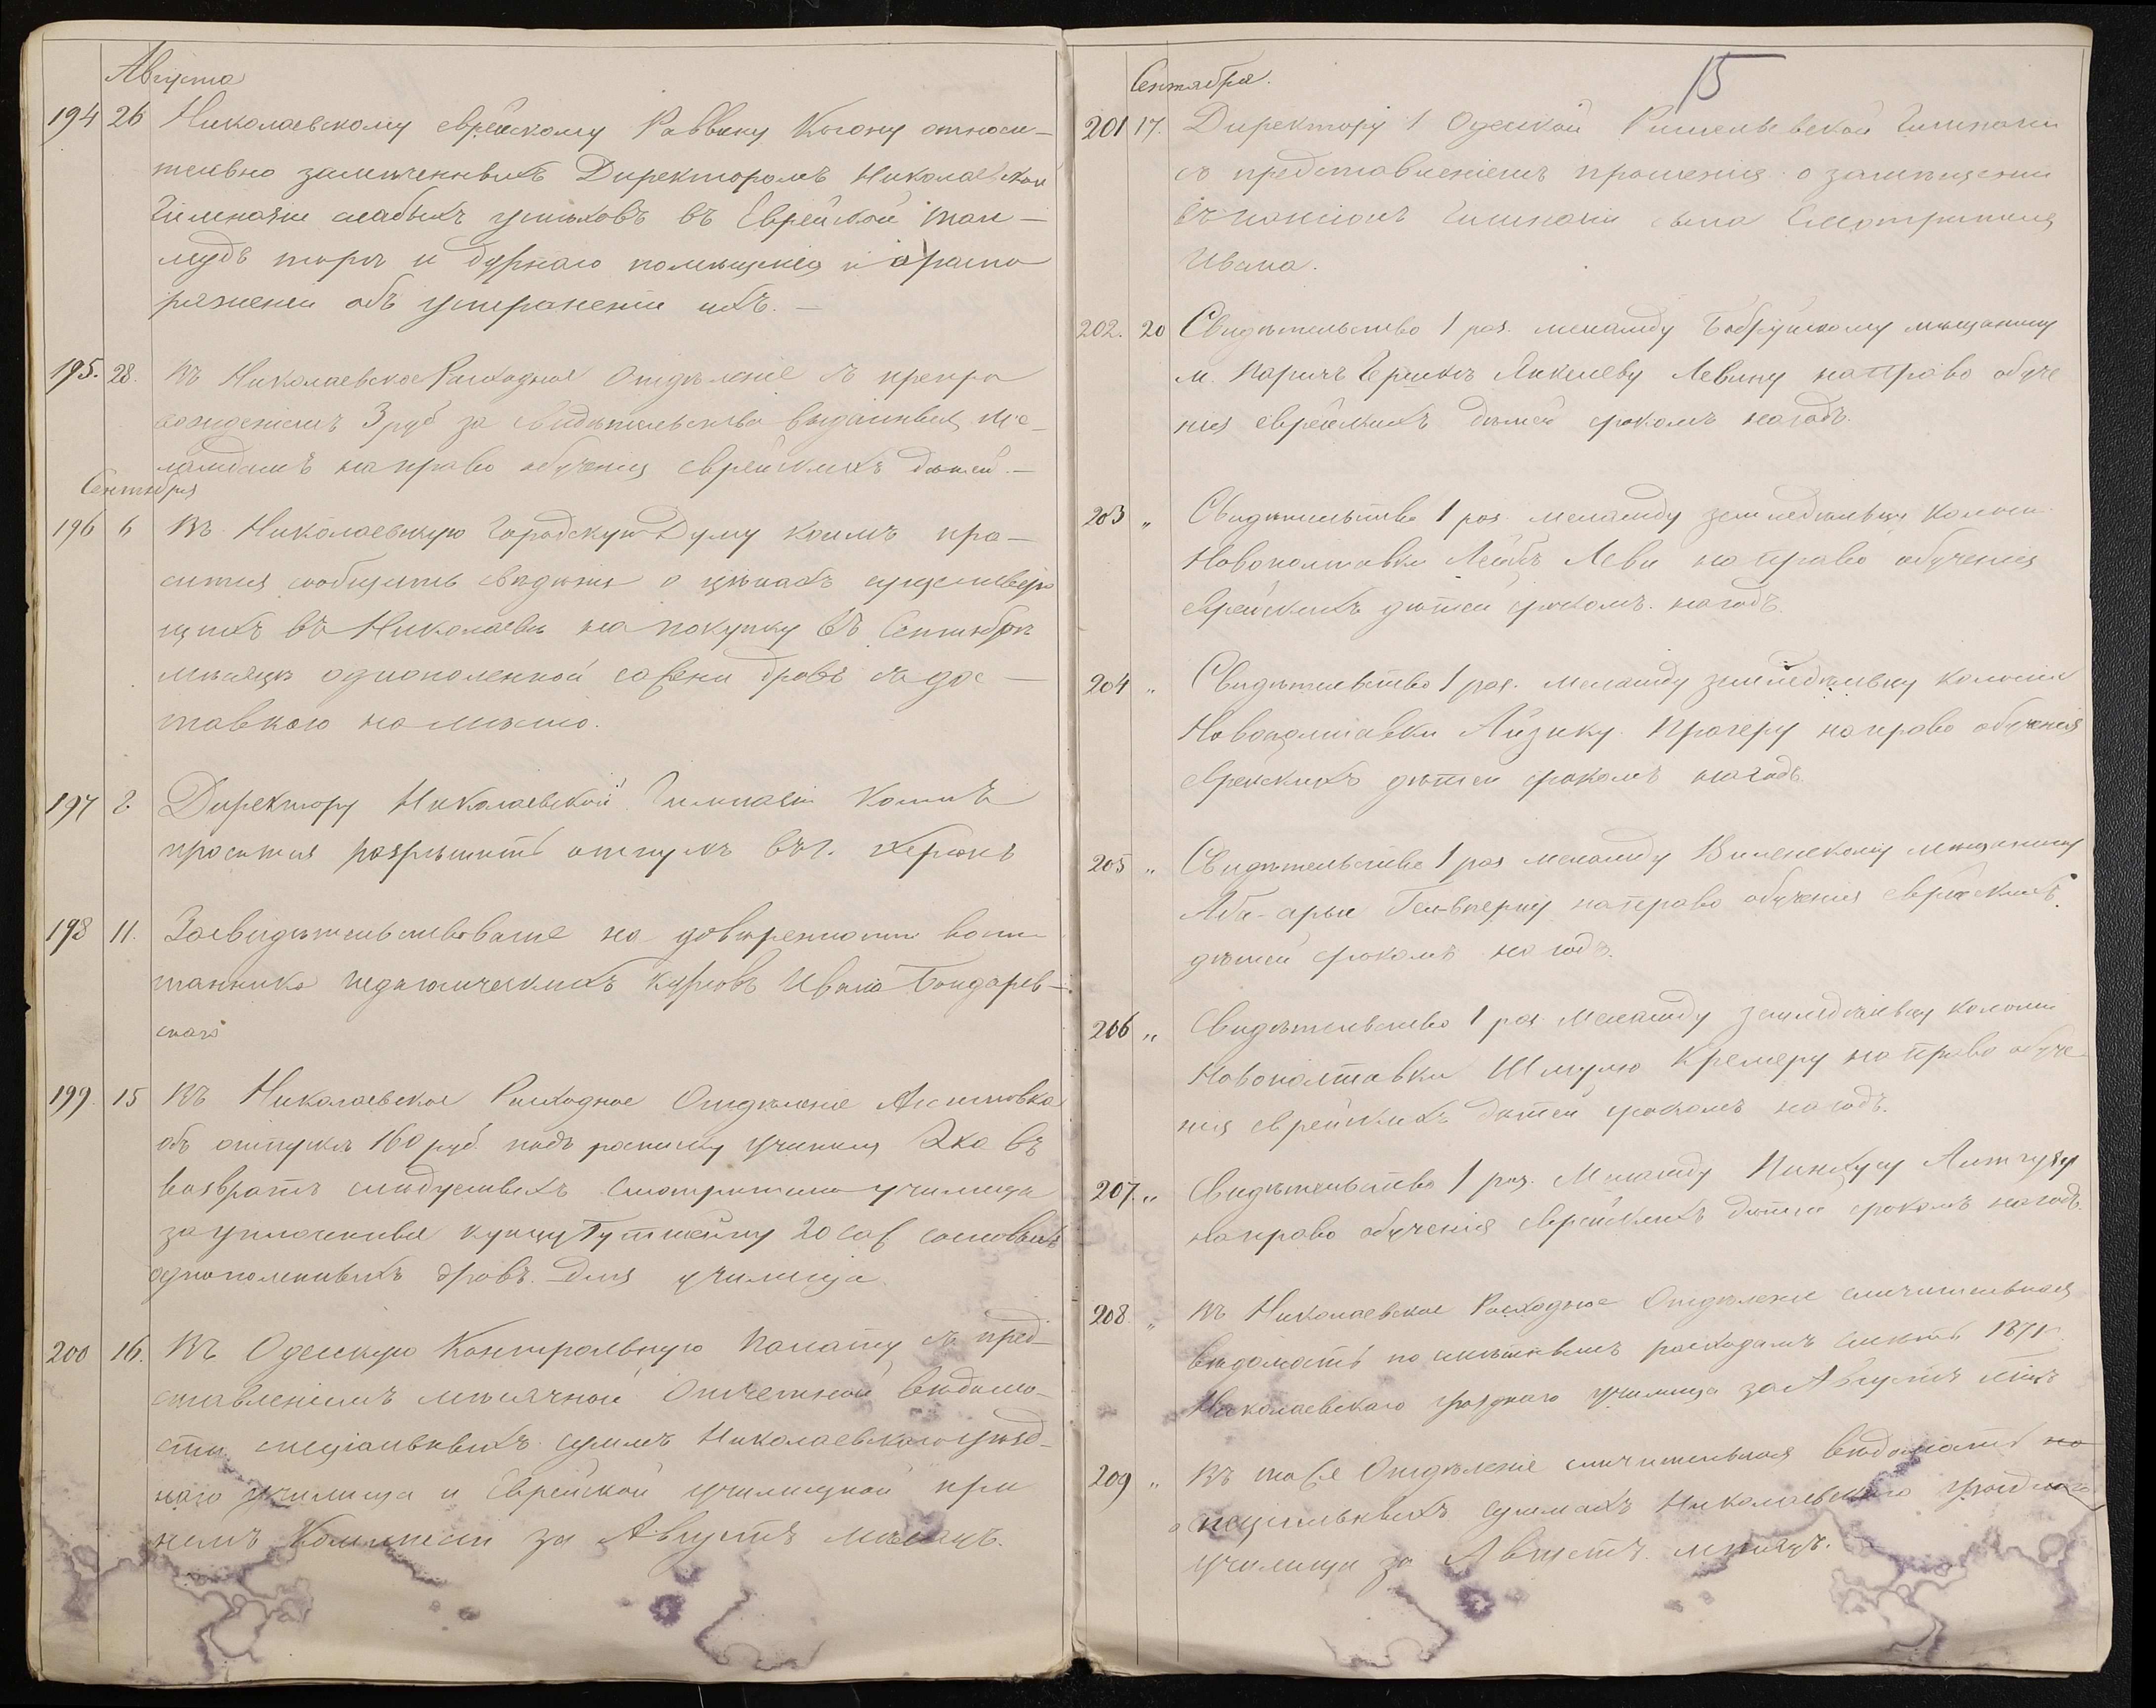 Августа
194 26 Николаевскому еврейскому Раввину Когану относи-
тельно замѣченныхъ Директоромъ Николаевской
Гимназіи слабыхъ успѣховъ въ Еврейской тал-
мудъ торѣ и дурнаго помѣщенія и о распо
ряженіи объ устраненіи ихъ. —
195. 28. Въ Николаевское Расходное Отдѣленіе съ препро
вожденіемъ 3 руб за свидѣтельства выданныя ме-
ламдамъ на право обученія еврейскихъ дѣтей. —
Сентября
196 6 Въ Николаевскую Городскую Думу коимъ про-
сится сообщить свѣдѣнія о цѣнахъ существую
щихъ въ Николаевѣ на покупку въ Сентябрѣ
мѣсяцѣ однополенной сажени дровъ съ дос-
тавкою на мѣсто.
197 Директору Николаевской Гимназіи коимъ
просится разрѣшить отпускъ въ г. Херсонъ
198 11. Засвидѣтельствованіе на довѣренности воспи
танника педагогическихъ курсовъ Ивана Бондарев-
скаго
199 15 Въ Николаевское Расходное Отдѣленіе Ассигновка
объ отпускѣ 160 руб. подъ росписку учителя въ
возвратъ слѣдуемыхъ смотрителю училища
за уплоченныя купцу Гутшейну 20 саж сосновыхъ
однополенныхъ дровъ для училища.
200 16. Въ Одесскую Контрольную Палату съ пред-
ставленіемъ мѣсячной Отчетной вѣдомо-
сти спеціальныхъ суммъ Николаевскаго уѣзд-
наго училища и Еврейской училищной при
немъ Коммисіи за Августъ мѣсяцъ.
15
Сентября.
201 17. Директору 1 Одесской Ришельевской Гимназіи
съ представленіемъ прошенія о замѣщеніи
въ пансіонъ Гимназіи сына Смотрителя
Ивана.
202. 20 Свидѣтельство 1 раз. меламду Бобруйскому мѣщанину
м. Паричъ Гершонъ Янкелеву Левину на право обуче
нія еврейскихъ дѣтей срокомъ на годъ.
203 „ Свидѣтельство 1 раз. меламду земледѣльцу колоніи
Новополтавки Лейбъ Леви на право обученія
еврейскихъ дѣтей срокомъ на годъ.
204 „ Свидѣтельство 1 раз. меламду земледѣльцу колоніи
Новополтавки Айзику Прагеру на право обученія
еврейскихъ дѣтей срокомъ на годъ.
205 „ Свидѣтельство 1 раз меламду Виленскому мѣщанину
Аба-арье Гельперну на право обученія еврейскихъ
дѣтей срокомъ на годъ.
206 „ Свидѣтельство 1 раз меламду земледѣльцу колоніи
Новополтавки Шмулю Кремеру на право обуче
нія еврейскихъ дѣтей срокомъ на годъ.
207. „ Свидѣтельство 1 раз. Меламду Пинхусу Альтгузу
на право обученія еврейскихъ дѣтей срокомъ на годъ.
208 „ Въ Николаевское Расходное Отдѣленіе сличительная
вѣдомость по смѣтнымъ расходамъ смѣты 1871 г.
Николаевскаго уѣзднаго училища за Августъ мѣс
209 „ Въ тоже Отдѣленіе сличительная вѣдомость по
о спеціальныхъ суммахъ Николаевскаго уѣзднаго
училища за Августъ мѣсяцъ.